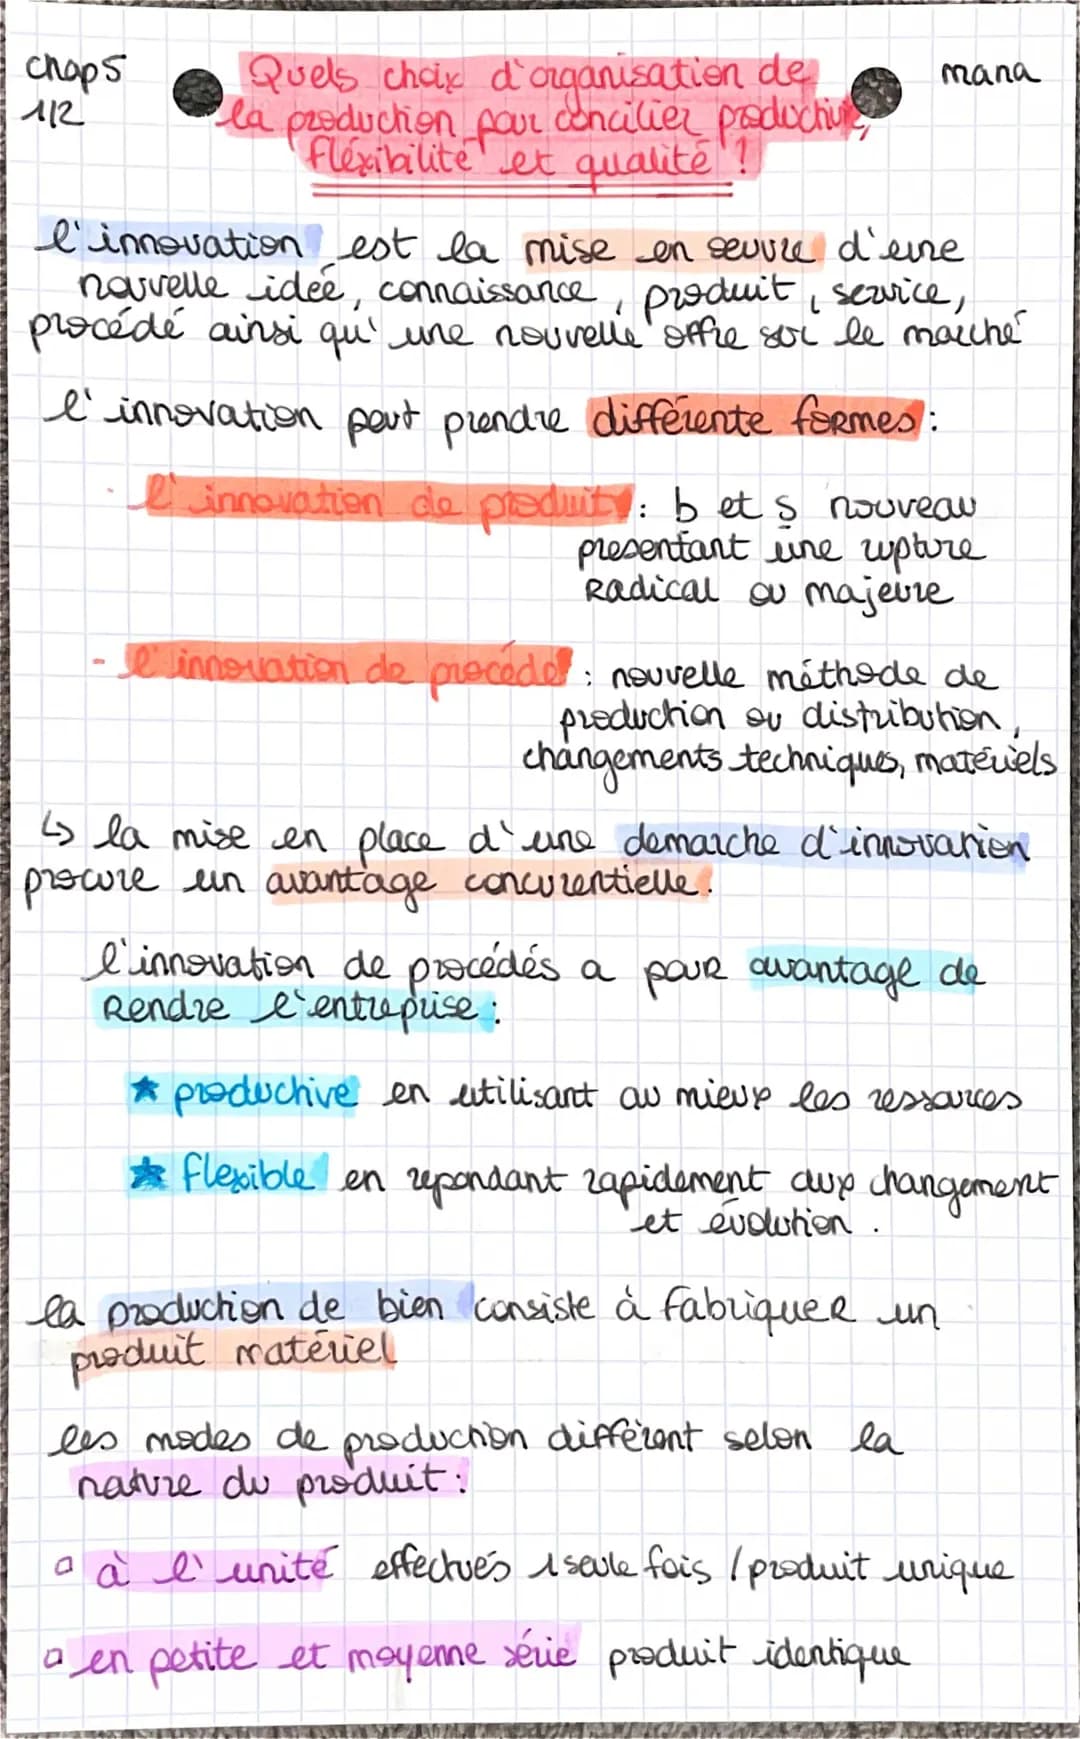 chap 5
1/2
mana
Quels choix d'organisation de
la production pour concilier productivité,
fléxibilité et qualité !
l'innovation est la mise en oeuvre d'une
nouvelle idée, connaissance, produit, service,
procédé ainsi qu'une nouvelle offre sur le marché
l'innovation peut prendre différente formes :
- l'innovation de produit : b et s nouveau
présentant une rupture
Radical ou majeure
- l'innovation de procédé : nouvelle méthode de
production ou distribution,
changements techniques, matériels
↳ la mise en place d'une demarche d'innovation
procure un avantage concurentielle.
l'innovation de procédés a pour avantage de
Rendre l'entreprise :
★ productive en utilisant au mieux les ressources
★ flexible en repondant rapidement aux changement
et évolution .
la production de bien consiste à fabriquer un
produit matériel
les modes de production différent selon la
nature du produit :
▫ à l'unité effectués 1 seule fois / produit unique
▫ en petite et moyenne série produit identique